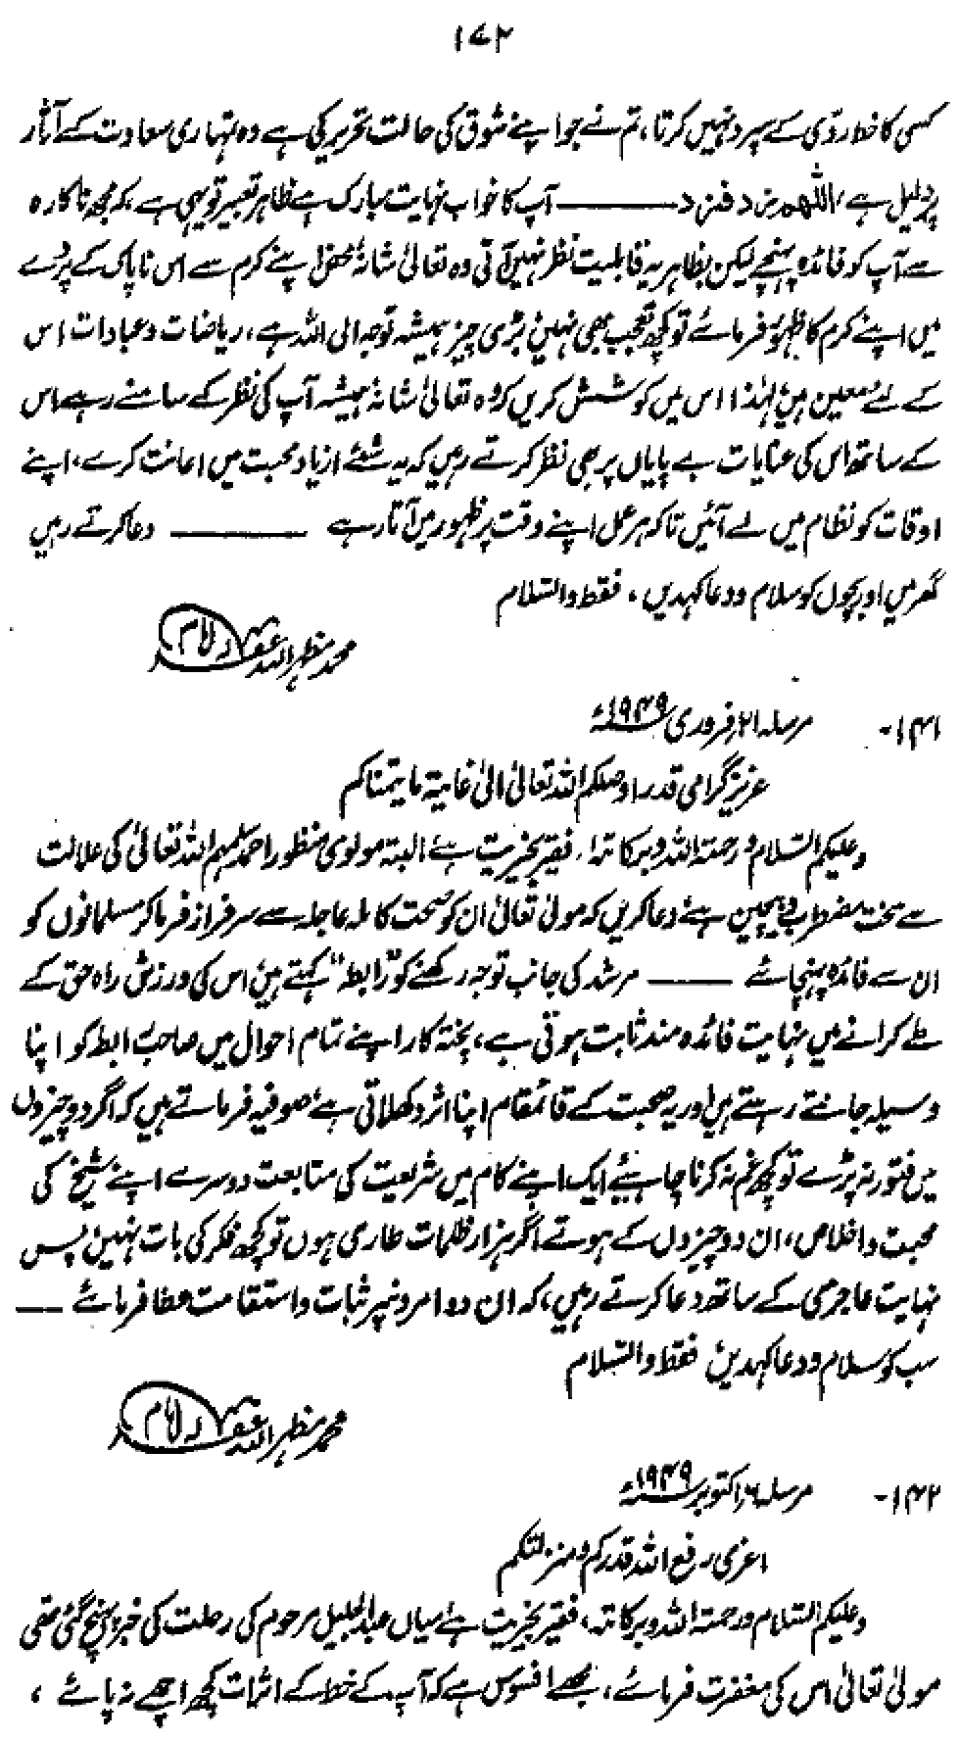 ۱۷۲
کسی کا خط ردّی کے سپرد نہیں کرتا، تم نے جو اپنے شوق کی حالت تحریر کی ہے وہ تمہاری سعادت کے آثار
پر دلیل ہے، اللھم زد فزد ——— آپ کا خواب نہایت مبارک ہے بظاہر تعبیر تو یہی ہے کہ مجھ ناکارہ
سے آپ کو فائدہ پہنچے لیکن بظاہر یہ قابلیت نظر نہیں آتی وہ تعالیٰ شانہٗ محض اپنے کرم سے اس ناپاک کے پردے
میں اپنے کرم کا ظہور فرمائے تو کچھ تعجب بھی نہیں بڑی چیز ہمیشہ توجہ الی اللہ ہے، ریاضات و عبادات اس
کے لئے معین ہیں لہٰذا اس میں کوشش کریں کہ وہ تعالیٰ شانہٗ ہمیشہ آپ کی نظر کے سامنے رہے اس
کے ساتھ اس کی عنایات بے پایاں پر بھی نظر کرتے رہیں کہ یہ شئے ازیاد محبت میں اعانت کرے، اپنے
اوقات کو نظام میں لے آئیں تاکہ ہر عمل اپنے وقت پر ظہور میں آتا رہے ——— دعا کرتے رہیں
گھر میں اور بچوں کو سلام و دعا کہدیں، فقط والسّلام
محمد مظہر اللہ غفرلہ الامام
۱۴۱- مرسلہ ۲۱؍فروری ۱۹۴۹ء
عزیز گرامی قدر اوصلکم اللہ تعالیٰ الیٰ غایۃ ما یتمناکم
وعلیکم السّلام ورحمۃ اللہ وبرکاتہ، فقیر بخیریت ہے البتہ مولوی منظور احمد سلمہم اللہ تعالیٰ کی علالت
سے سخت مضطرب و بیچین ہے دعا کریں کہ مولیٰ تعالیٰ ان کو صحت کاملہ عاجلہ سے سرفراز فرما کر مسلمانوں کو
ان سے فائدہ پہنچائے ——— مرشد کی جانب توجہ رکھنے کو "رابطہ" کہتے ہیں اس کی ورزش راہ حق کے
طے کرانے میں نہایت فائدہ مند ثابت ہوتی ہے، پختہ کار اپنے تمام احوال میں صاحب رابطہ کو اپنا
وسیلہ جانتے رہتے ہیں اور یہ صحبت کے قائمقام اپنا اثر دکھلاتی ہے صوفیہ فرماتے ہیں کہ اگر دو چیزوں
میں فتور نہ پڑے تو کچھ غم نہ کرنا چاہیئے ایک اپنے کام میں شریعت کی متابعت دوسرے اپنے شیخ کی
محبت و اخلاص، ان دو چیزوں کے ہوتے اگر ہزار ظلمات طاری ہوں تو کچھ فکر کی بات نہیں پس
نہایت عاجزی کے ساتھ دعا کرتے رہیں، کہ ان دو امروں پر ثبات و استقامت عطا فرمائے ——
سب کو سلام و دعا کہدیں فقط والسّلام
محمد مظہر اللہ غفرلہ الامام
۱۴۲- مرسلہ ۶؍اکتوبر ۱۹۴۹ء
اعزی رفع اللہ قدرکم و منزلتکم
وعلیکم السّلام ورحمۃ اللہ وبرکاتہ، فقیر بخیریت ہے میاں عبدالجلیل مرحوم کی رحلت کی خبر پہنچ گئی تھی
مولیٰ تعالیٰ اس کی مغفرت فرمائے، مجھے افسوس ہے کہ آپ کے خط کے اثرات کچھ اچھے نہ پائے،